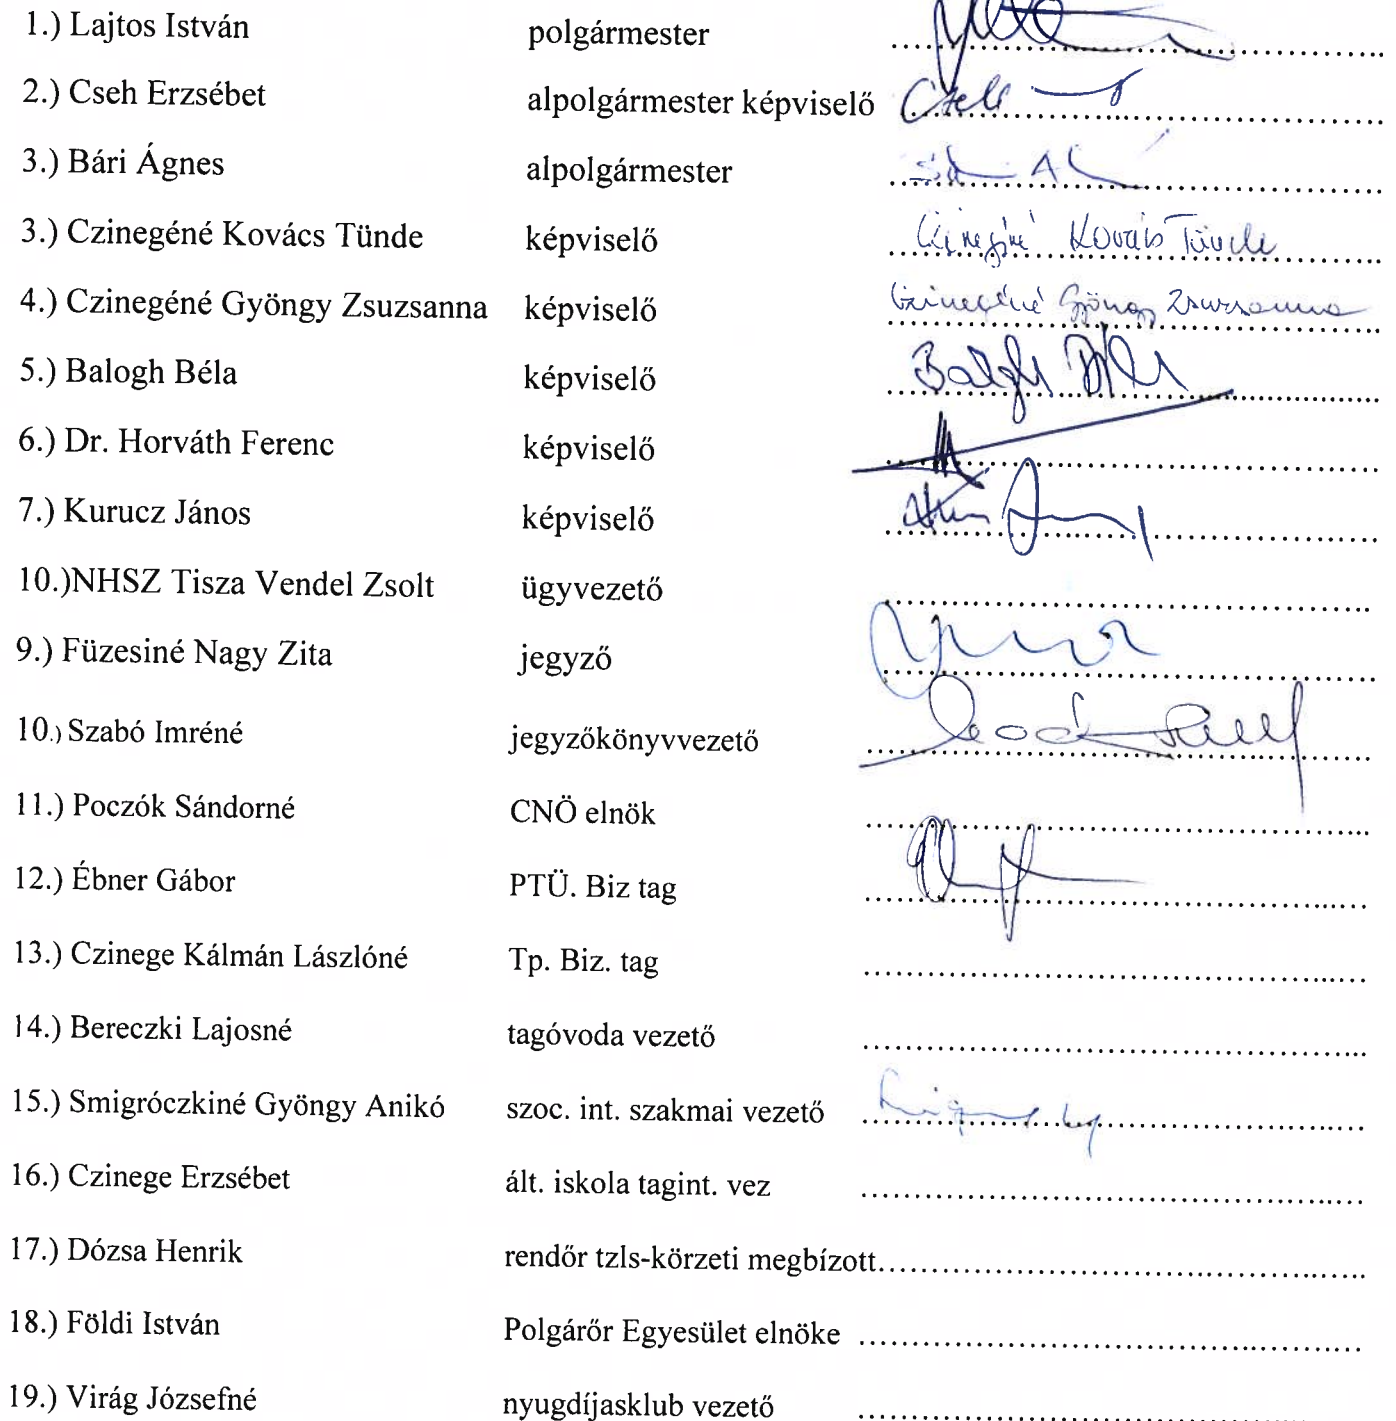 1.) Lajtos István polgármester ........
2.) Cseh Erzsébet alpolgármester képviselő Cseh ........
3.) Bári Ágnes alpolgármester ........
3.) Czinegéné Kovács Tünde képviselő Czinegéné Kovács Tünde ........
4.) Czinegéné Gyöngy Zsuzsanna képviselő Czinegéné Gyöngy Zsuzsanna ........
5.) Balogh Béla képviselő Balogh Béla ........
6.) Dr. Horváth Ferenc képviselő ........
7.) Kurucz János képviselő ........
10.)NHSZ Tisza Vendel Zsolt ügyvezető ........
9.) Füzesiné Nagy Zita jegyző ........
10.) Szabó Imréné jegyzőkönyvvezető ........
11.) Poczók Sándorné CNÖ elnök ........
12.) Ébner Gábor PTÜ. Biz tag ........
13.) Czinege Kálmán Lászlóné Tp. Biz. tag ........
14.) Bereczki Lajosné tagóvoda vezető ........
15.) Smigróczkiné Gyöngy Anikó szoc. int. szakmai vezető ........
16.) Czinege Erzsébet ált. iskola tagint. vez ........
17.) Dózsa Henrik rendőr tzls-körzeti megbízott ........
18.) Földi István Polgárőr Egyesület elnöke ........
19.) Virág Józsefné nyugdíjasklub vezető ........